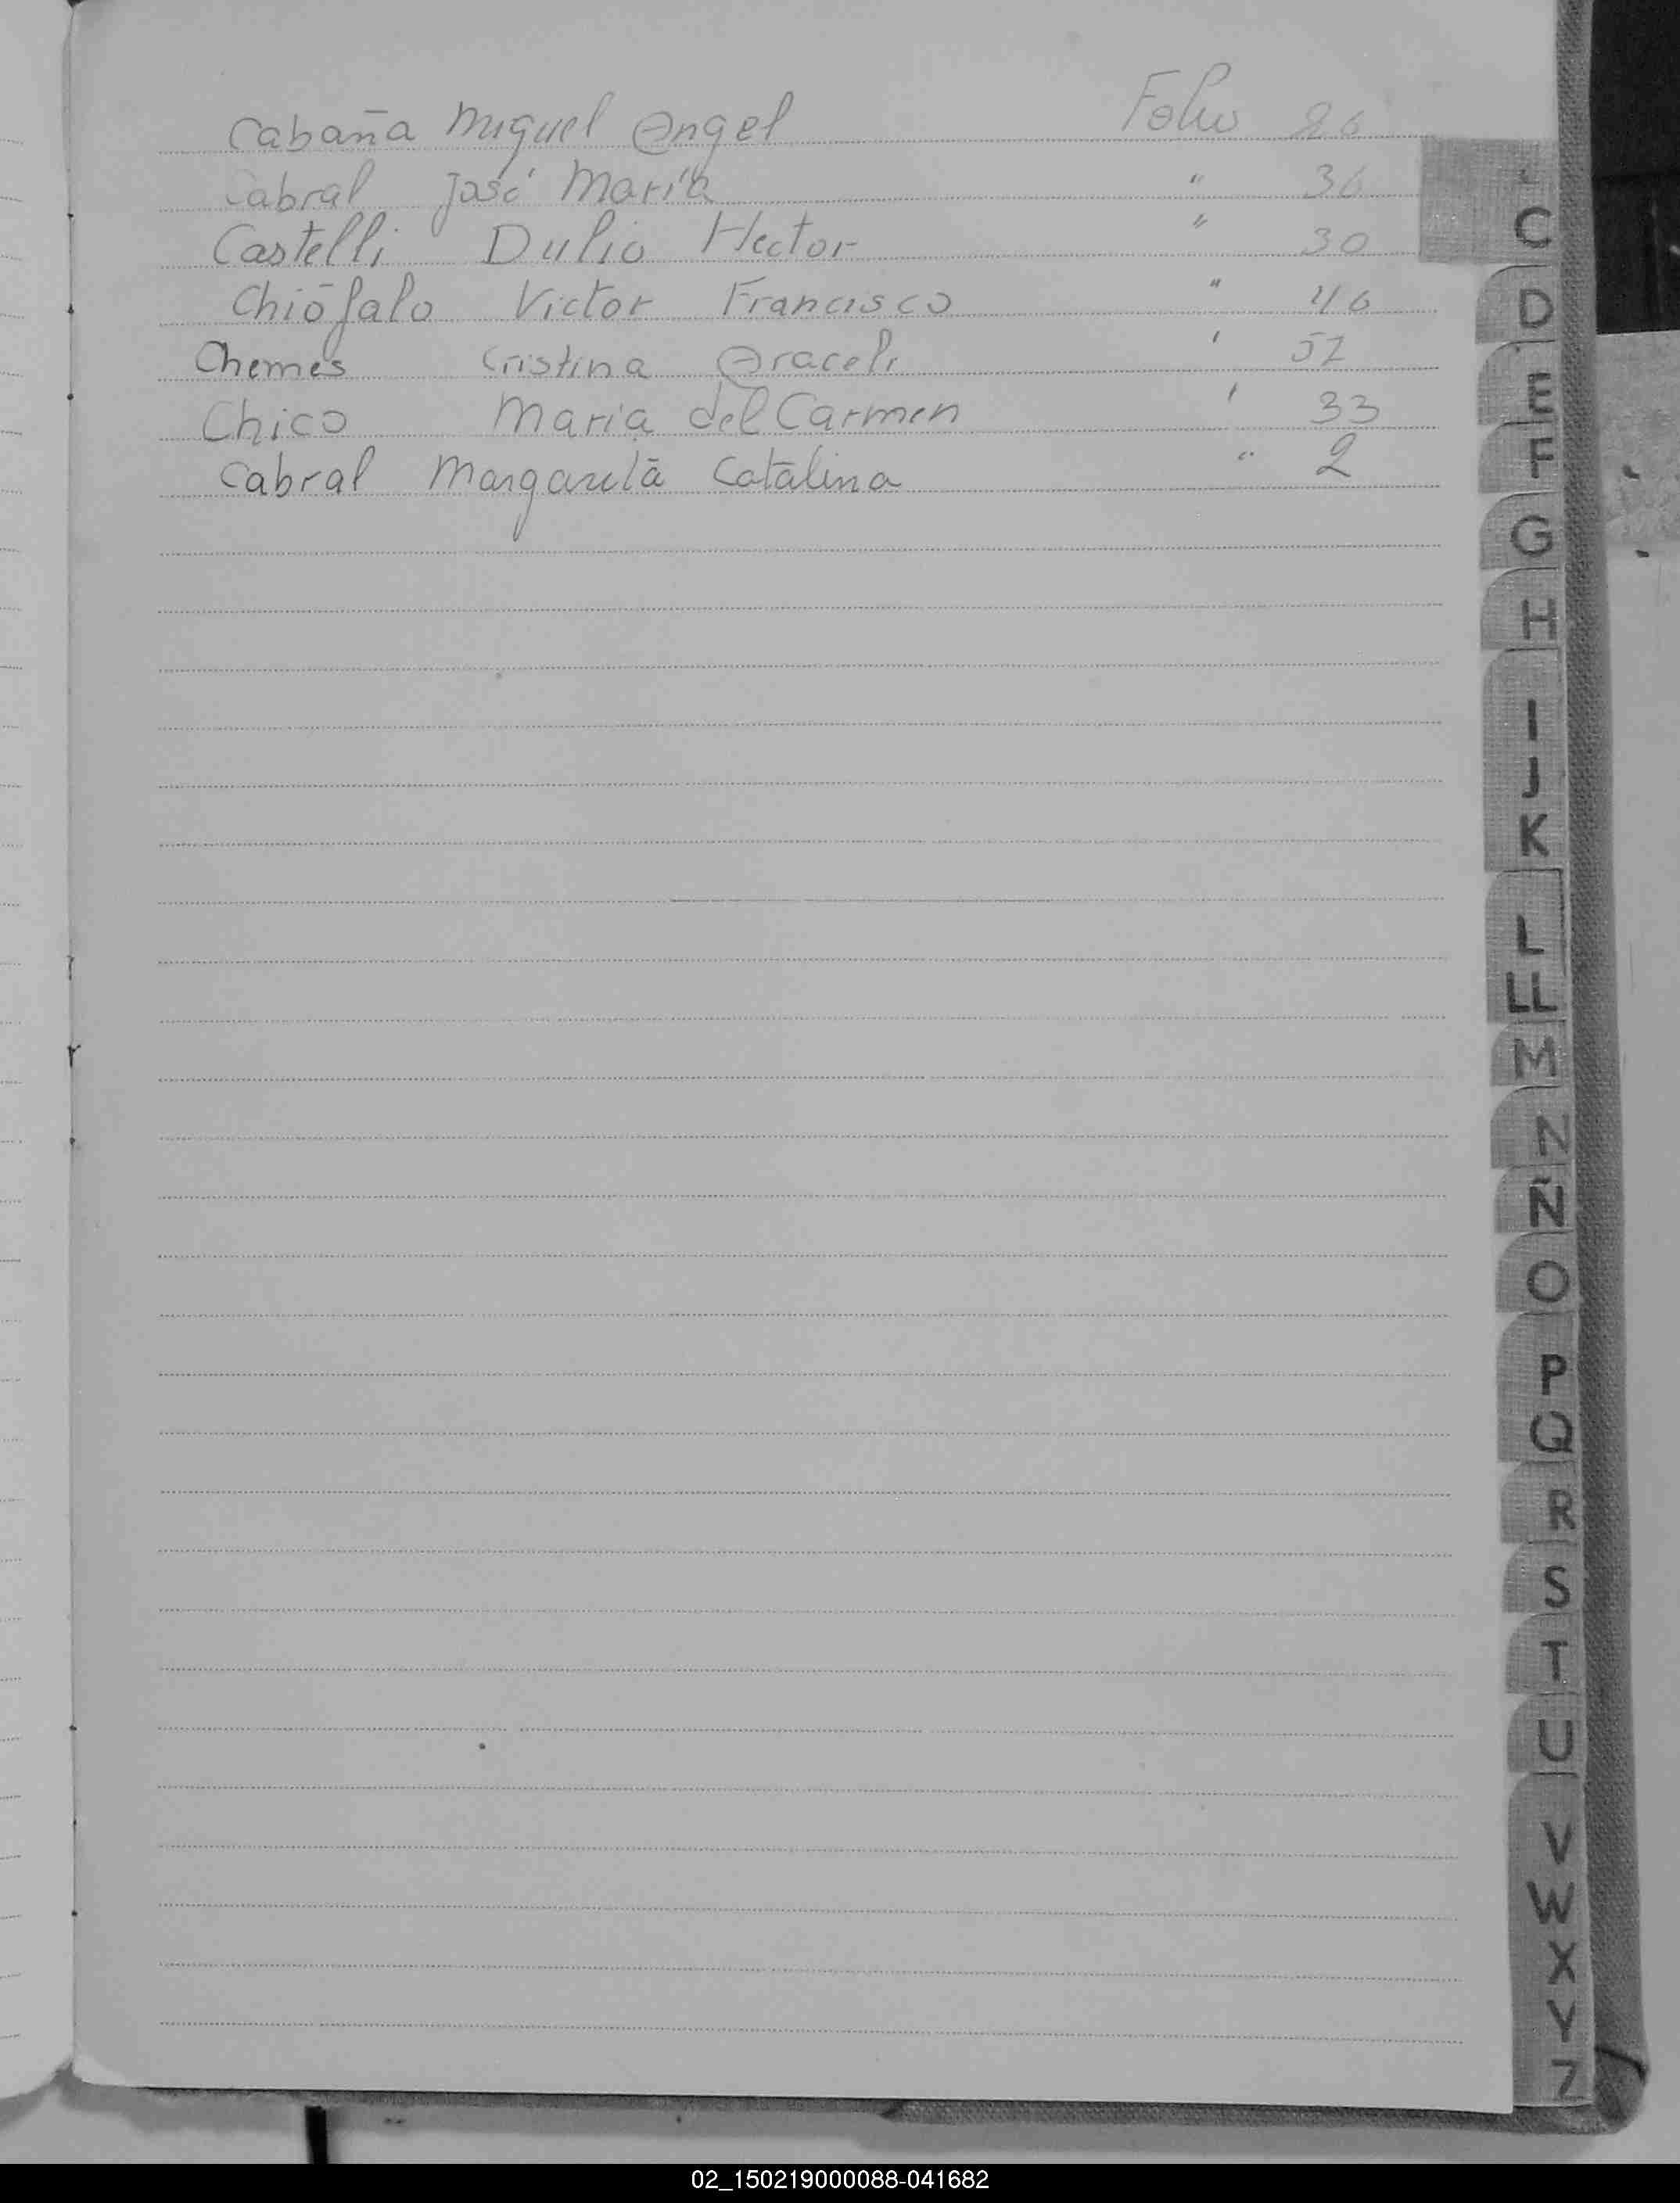 Cabaña Miguel Angel Folio 26
Cabral José María " 36
Castelli Dulio Hector " 30
Chiófalo Victor Francisco " 46
Chemes Cristina Araceli " 52
Chico Maria del Carmen " 33
Cabral Margarita Catalina " 2
C
D
E
F
G
H
I
J
K
L
LL
M
N
Ñ
O
P
Q
R
S
T
U
V
W
X
Y
Z
02_150219000088-041682